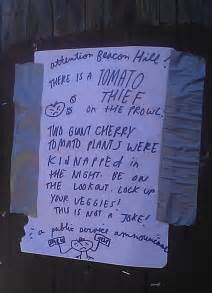 attention Beacon Hill!
THERE IS A TOMATO
THIEF
on the PROWL.
TWO GIANT CHERRY
TOMATO PLANTS WERE
KIDNAPPED in
THE NIGHT. BE ON
THE LOOKOUT. LOCK UP
YOUR VEGGIES!
THIS IS NOT A JOKE!
a public service announcement